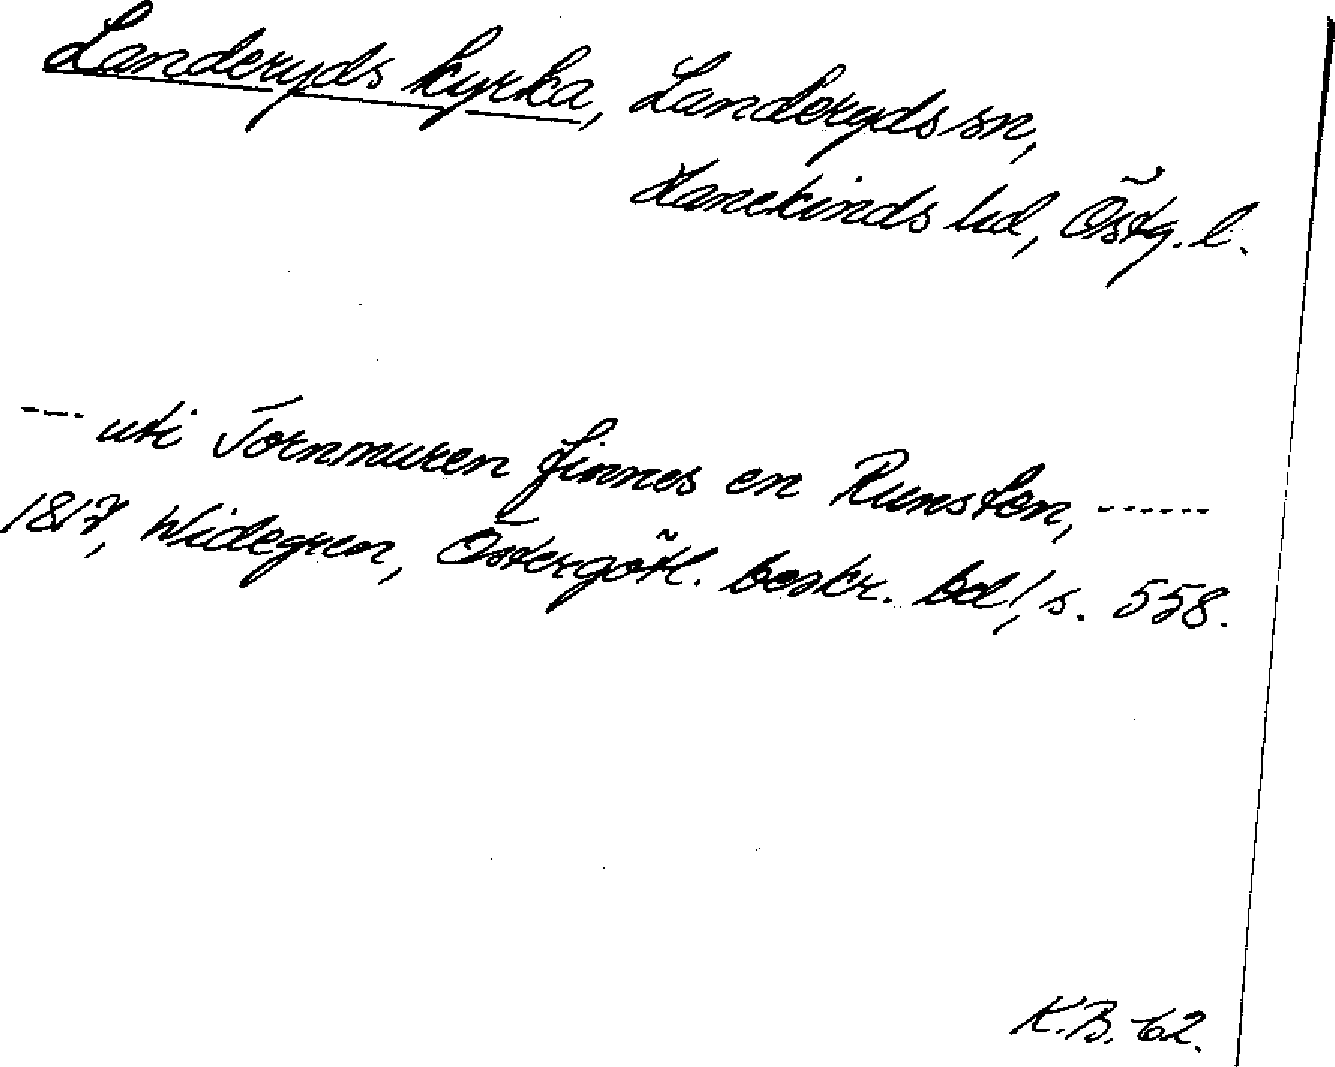 Landeryds kyrka, Landeryds sn,
Hanekinds hd, Östg. l.
---- uti Tornmuren finnes en Runsten, ------
1817, Widegren, Östergötl. beskr. bd 1, s. 558.
K.B. 62.